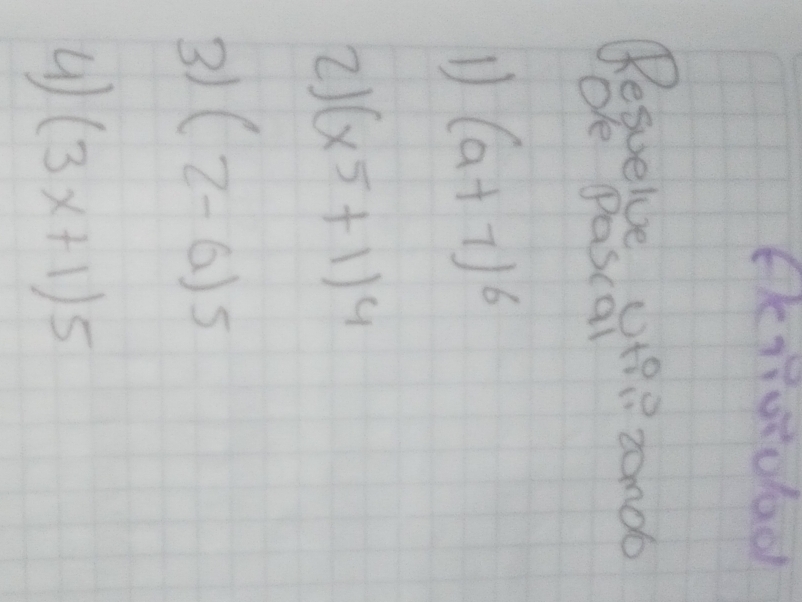 Actividad
Resuelve utilizando
de Pascal
1) (a+7)6
2) (x5+1)4
3) (2-6)5
4) (3x+1)5